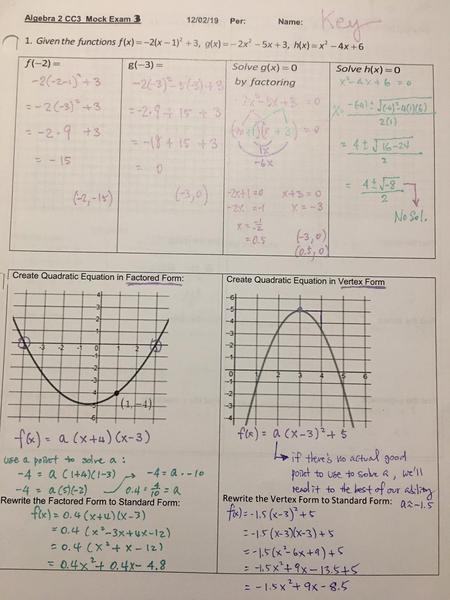 Algebra 2 CC3 Mock Exam 3 12/02/19 Per: Name: Key
1. Given the functions f(x)=-2(x-1)²+3, g(x)=-2x²-5x+3, h(x)=x²-4x+6
f(-2)=
-2(-2-1)²+3
=-2(-3)²+3
=-2·9+3
=-15
(-2,-15)
g(-3)=
-2(-3)²-5(-3)+3
=-2·9+15+3
=-18+15+3
=0
(-3,0)
Solve g(x)=0
by factoring
-2x²-5x+3=0
1x
-6x
-2x+1=0 x+3=0
-2x=-1 x=-3
x=-1/-2
=0.5
(-3,0)
(0.5,0)
Solve h(x)=0
x²-4x+6=0
x=-(-4)±√(-4)²-4(1)(6)/2(1)
=4±√16-24/2
=4±√-8/2
No Sol.
Create Quadratic Equation in Factored Form:
(1,-4)
f(x)=a(x+4)(x-3)
use a point to solve a:
-4=a(1+4)(1-3) → -4=a·-10
-4=a(5)(-2) 0.4=4/10=a
Rewrite the Factored Form to Standard Form:
f(x)=0.4(x+4)(x-3)
=0.4(x²-3x+4x-12)
=0.4(x²+x-12)
=0.4x²+0.4x-4.8
Create Quadratic Equation in Vertex Form
f(x)=a(x-3)²+5
if there's no actual good
point to use to solve a, we'll
read it to the best of our ability
a≈-1.5
Rewrite the Vertex Form to Standard Form:
f(x)=-1.5(x-3)²+5
=-1.5(x-3)(x-3)+5
=-1.5(x²-6x+9)+5
=-1.5x²+9x-13.5+5
=-1.5x²+9x-8.5